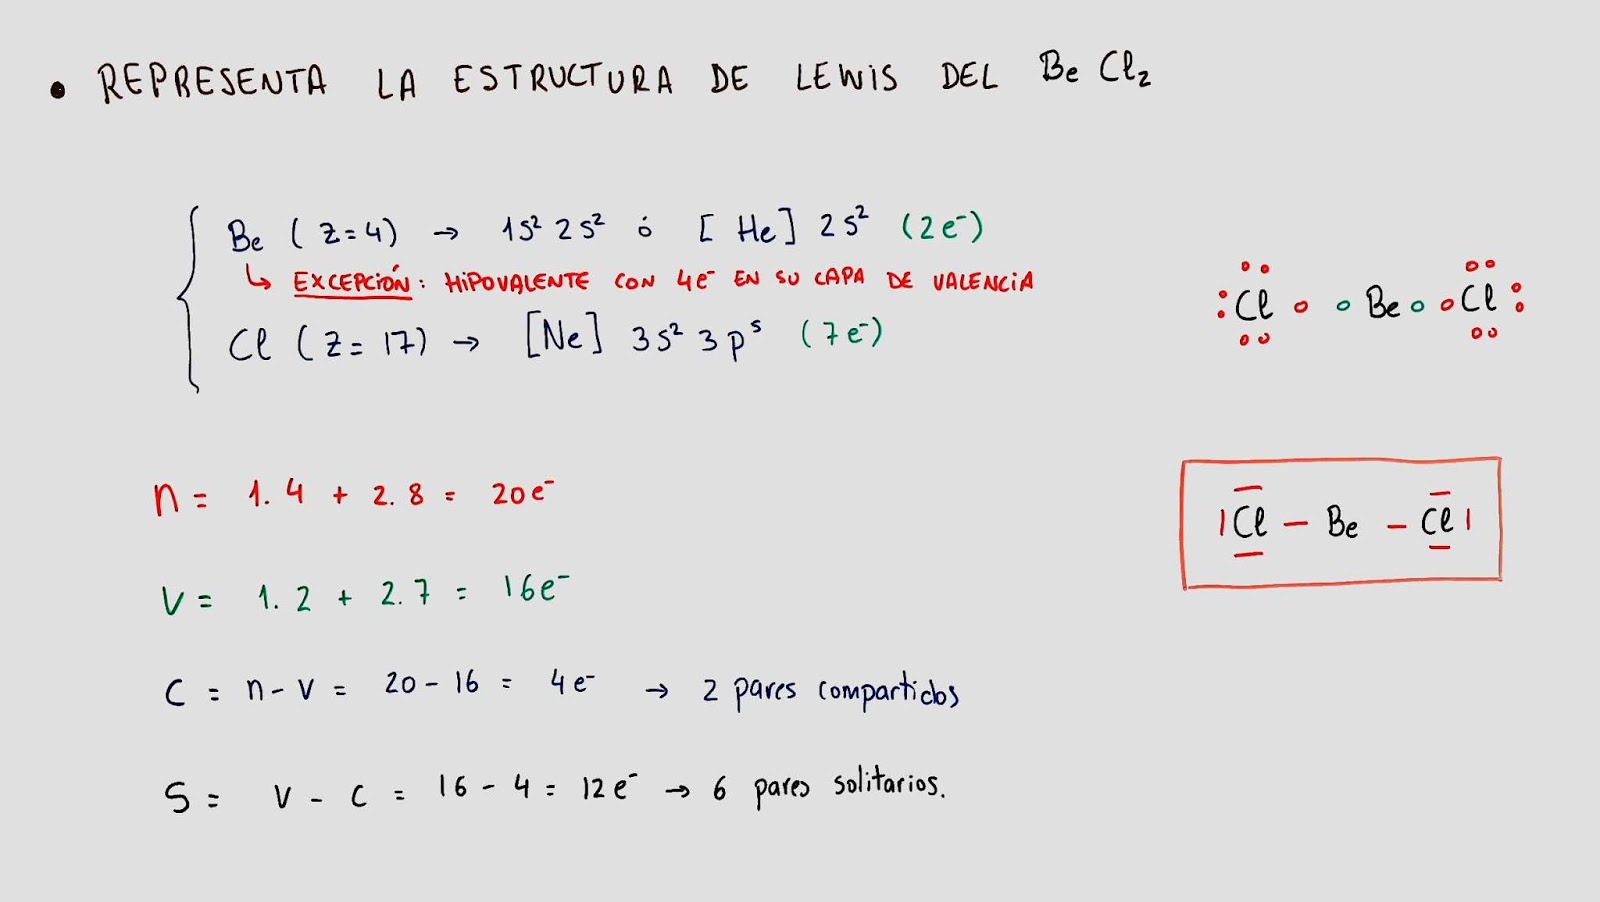 • REPRESENTA LA ESTRUCTURA DE LEWIS DEL BeCl₂
Be (Z=4) → 1s² 2s² ó [He] 2s² (2e⁻)
↳ EXCEPCIÓN: HIPOVALENTE CON 4e⁻ EN SU CAPA DE VALENCIA
Cl (Z=17) → [Ne] 3s² 3p⁵ (7e⁻)
Cl Be Cl
n = 1.4 + 2.8 = 20e⁻
|Cl – Be – Cl|
V = 1.2 + 2.7 = 16e⁻
C = n - v = 20 - 16 = 4e⁻ → 2 pares compartidos
S = V - C = 16 - 4 = 12e⁻ → 6 pares solitarios.